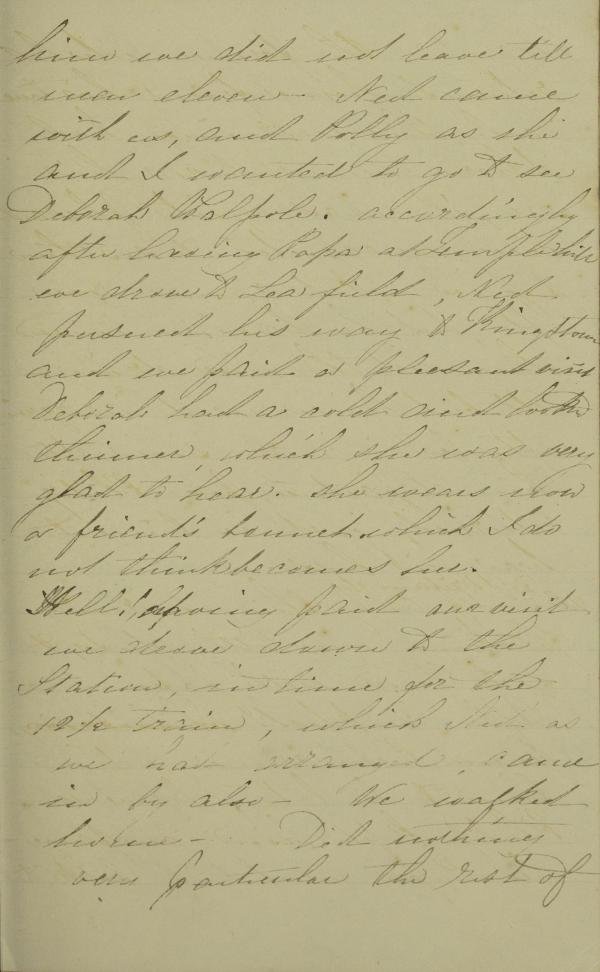 him we did not leave till
near eleven - Ned came
with us, and Polly as she
and I wanted to go to see
Deborah Walpole. accordingly
after leaving Papa at Temple hill
we drove to Lea field, Ned
pursued his way to Kingstown
and we paid a pleasant visit
Deborah had a cold and looks
thinner, which she was very
glad to hear. she wears now
a friend's bonnet which I do
not think becomes her.
Well! having paid our visit
we drove down to the
Station, in time for the
12 1/2 train, which Ned as
we had arranged, came
in by also - We walked
home - Did nothing
very particular the rest of